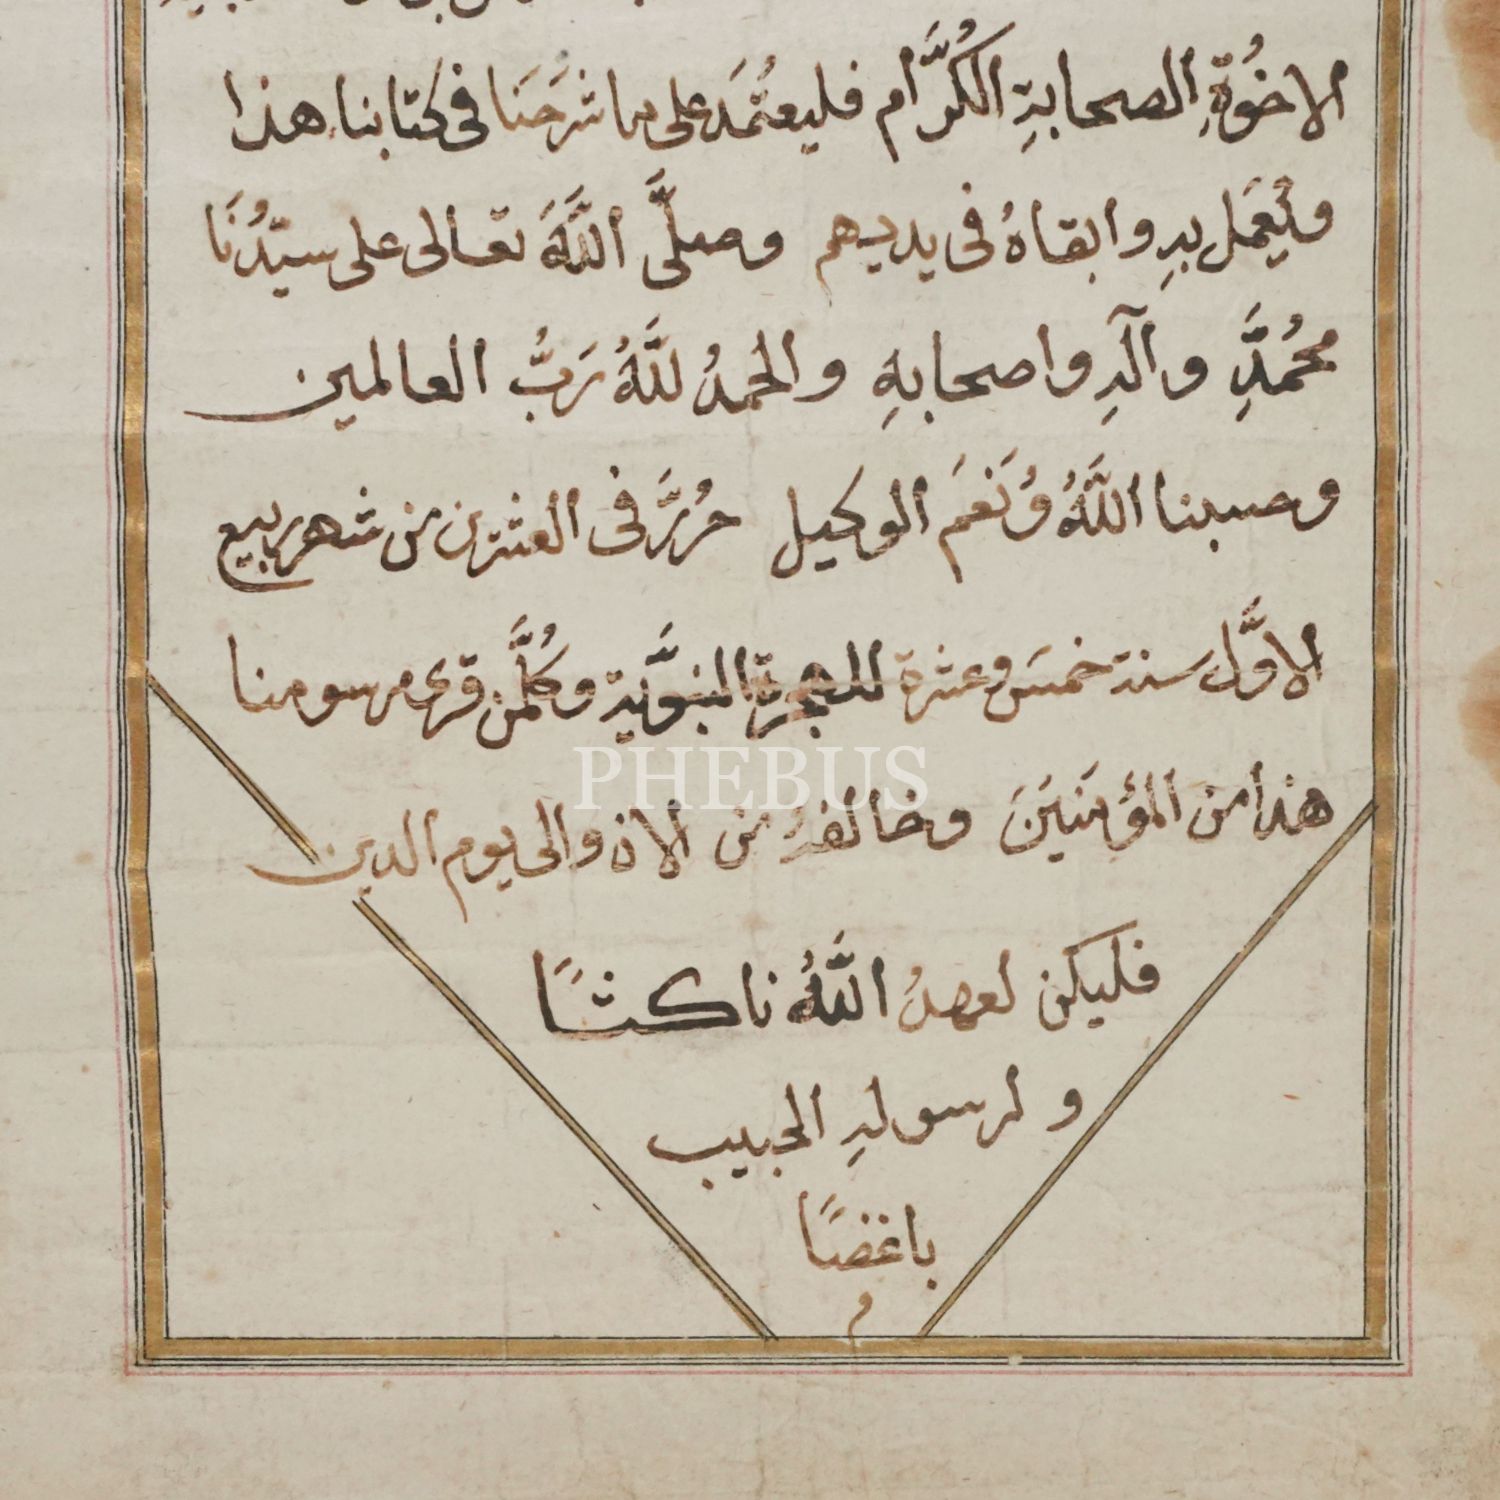 الاخوة الصحابة الكرام فليعتمد على ما شرحنا فى كتابنا هذا
وليعمل به وابقاه فى يديهم وصلى الله تعالى على سيدنا
محمد وآله واصحابه والحمد لله رب العالمين
وحسبنا الله ونعم الوكيل حرر فى العشرين من شهر ربيع
الاول سنة خمس وعشرة للهجرة النبوية وكلمن قرى مرسومنا
هذا من المؤمنين وخالفه من الان والى يوم الدين
فليكن لعهد الله ناكثا
و لرسوله الحبيب
باغضا
م
PHEBUS